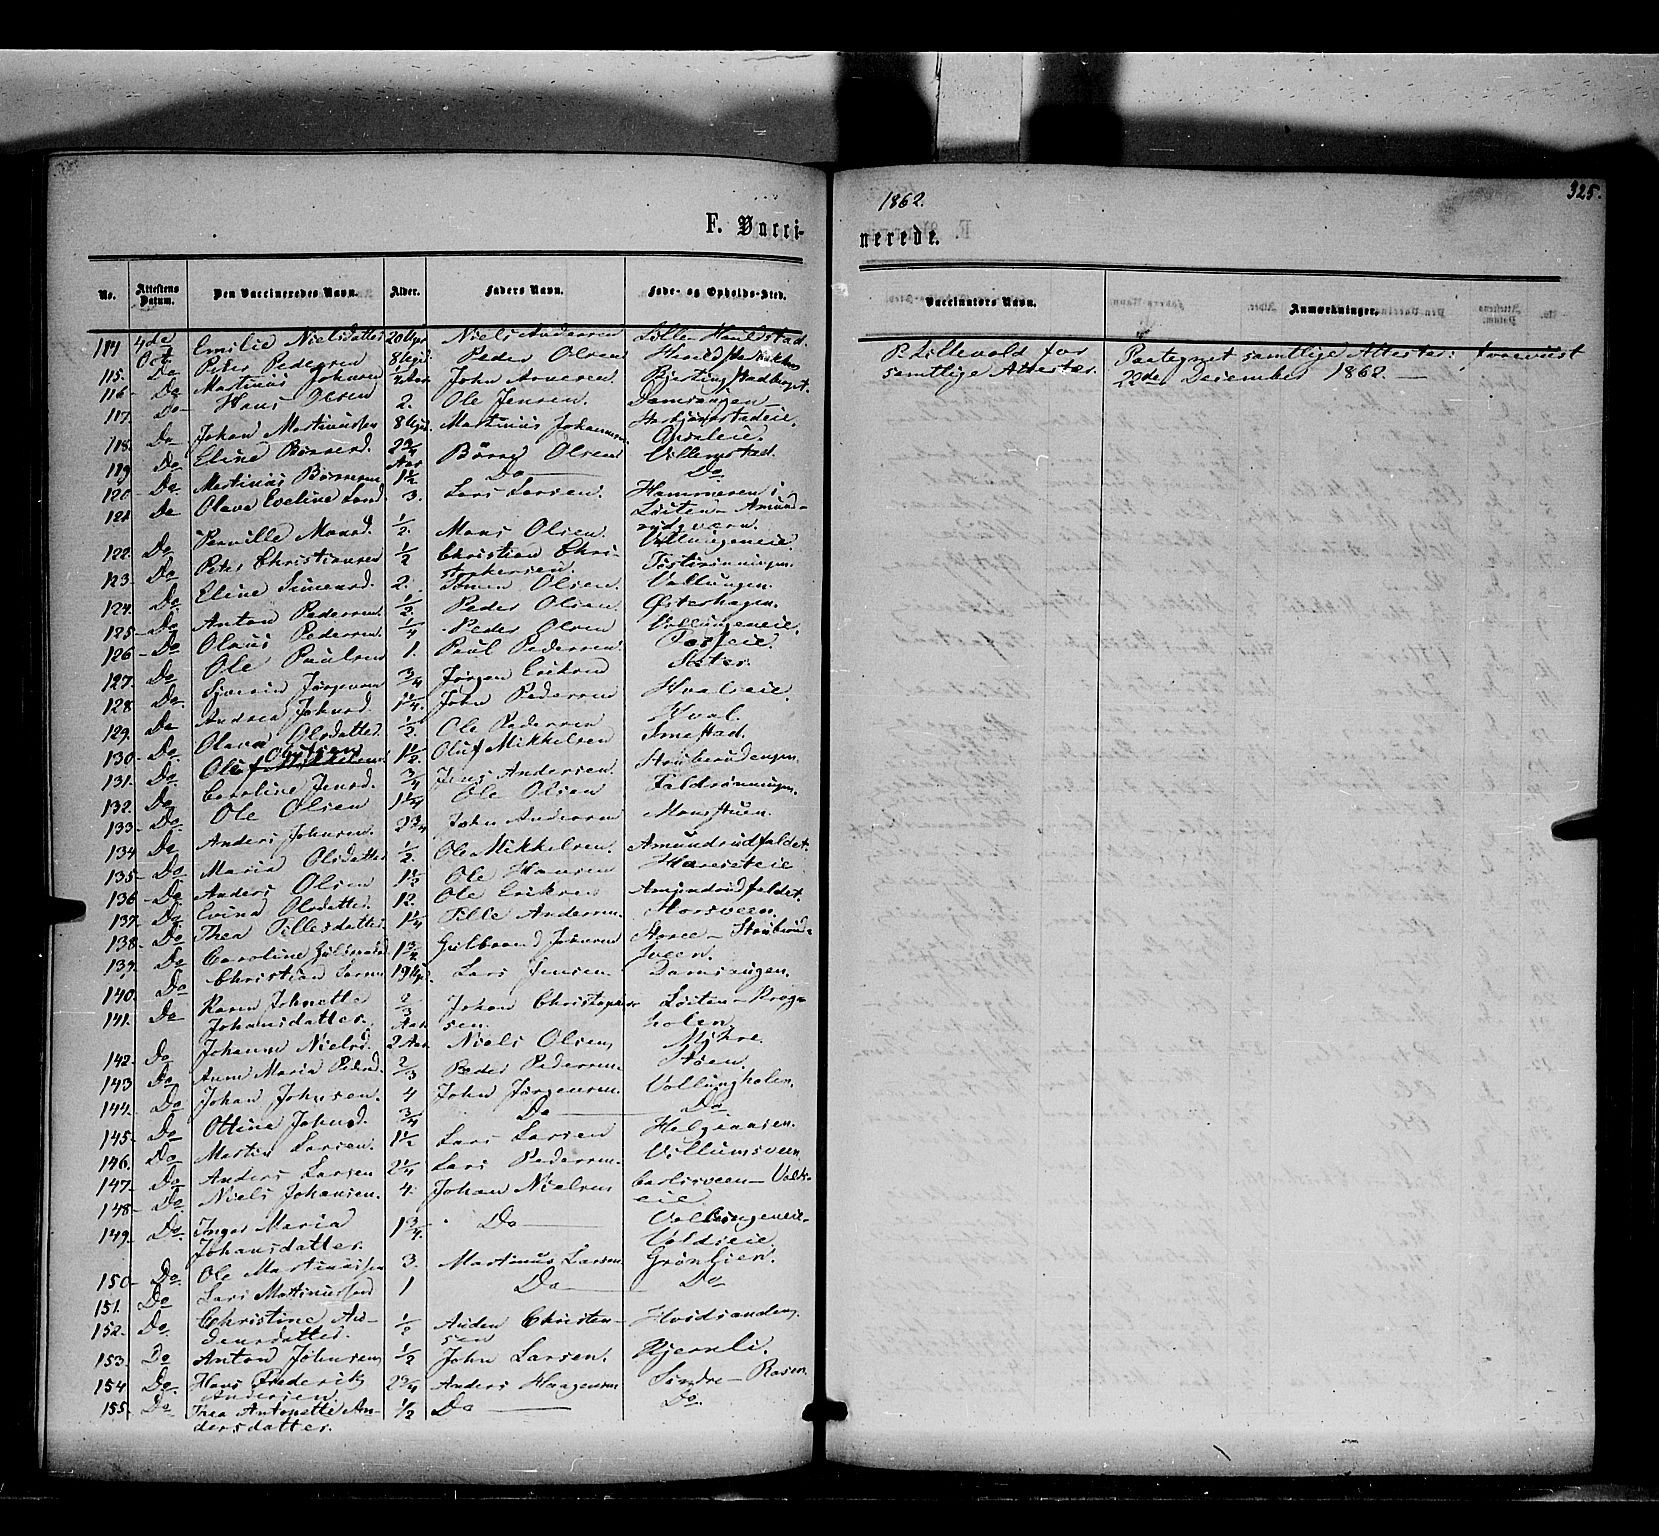 1862.
325.
F. Vacci-
nerede.
No. Attestens Datum. Den Vaccineredes Navn. Alder. Faders Navn. Føde- og Opholds-Sted. Vaccinators Navn. Anmærkninger.
114 4de Oct Emilie Nielsdatter 20 Uger Niels Andersen Lille Harildstad.
115. Do Peter Pedersen 8 Uger Peder Olsen
116 Do Martinus Johnsen John Arnesen
117. Do Hans Olsen 2. Ole Jensen. Damsangen
118. Do Johan Martinussen 8 Uger Martinus Johannesen
119 Do Eline Børresd. 2 3/4 Aar Børre Olsen Villumstad.
120 Do Martinus Børresen 1 1/2 Do Do
121 Do Olava Eveline Larsd 3. Lars Larsen. Hammeren i
Løiten - Amund-
rudsveen.
122. Do Pernille Monsd. 1/2. Mons Olsen. Vollungeneie.
123. Do Peter Christiansen 1/2 Christian Chri-
stophersen.
124. Do Eline Simensd. 2. Simen Olsen. Vollungen.
125 Do Anton Pedersen 1/2. Peder Olsen. Østerhagen.
126 Do Olaus Pedersen. 1/4 Peder Olsen Vollungeneie.
127. Do Ole Paulsen 1. Paul Pedersen.
128. Do Syverin Jørgensen 3/4 Jørgen Eriksen Hvaleie.
129. Do Andrea Johnsd. 1 1/4. John Pedersen Hval.
130 Do Olava Olsdatter 1/2. Ole Pedersen Smestad.
131. Do Oluf Olufsen 1 1/2 Oluf Mikkelsen Struberudengen.
132. Do Caroline Jensd. 3/4 Jens Andersen. Faldrønningen.
133. Do Ole Olsen 1 1/4 Ole Olsen Monsstuen.
134 Do Anders Johnsen. 2 3/4 John Andersen Amundrudfaldet.
135 Do Maria Olsdatter 1/2 Ole Mikkelsen.
136 Do Anders Olsen 1 1/2 Ole Hansen Amundrudfaldet.
137. Do Evina Olsdatter. 12. Ole Eriksen Storsveen.
138 Do Thea Tillesdatter. 1 1/4 Tille Andersen.
139. Do Caroline Gulbrandsd. Gulbrand Johnsen
140. Do Christian Larsen 19 Uger Lars Jensen. Damsangen.
141. Do Karen Johnette
Johansdatter. 2/3 Aar Johan Christopher-
sen. Løiten
142. Do Johanne Nielsd. 2 Aar Niels Olsen Myhre.
143 Do Anne Maria Pedersd. 2/3 Peder Pedersen Støen.
144. Do Johan Johnsen. 4 John Jørgensen Vollungholen.
145. Do Ottine Johnsd. 3/4 Do Do
146. Do Martin Larsen. 1 1/2 Lars Larsen Helgeaasen.
147. Do Anders Larsen 2 1/4 Lars Pedersen. Villumsveen
148 Do Niels Johansen. 4. Johan Nielsen Carlsveen - Volds-
eie
149. Do Inger Maria
Johansdatter. 1 3/4. Do Vollungeneie.
Voldseie.
150 Do. Ole Martinussen 3. Martinus Larsen Grønlien.
151. Do Lars Martinussen 1 Do Do
152. Do. Christine An-
densdatter. 1/2 Anden Christen-
sen Hvidsanden
153. Do Anton Johnsen 1/2 John Larsen. Kjernli.
154 Do. Hans Frederik
Andersen 2 3/4 Anders Haagensen Søndre - Rosen
155. Do Thea Antonette An-
dersdatter. 1/2 Do Do.
P. Lillevold for
samtlige Attester.
Paategnet samtlige Attester: foreviist
22de December 1862.